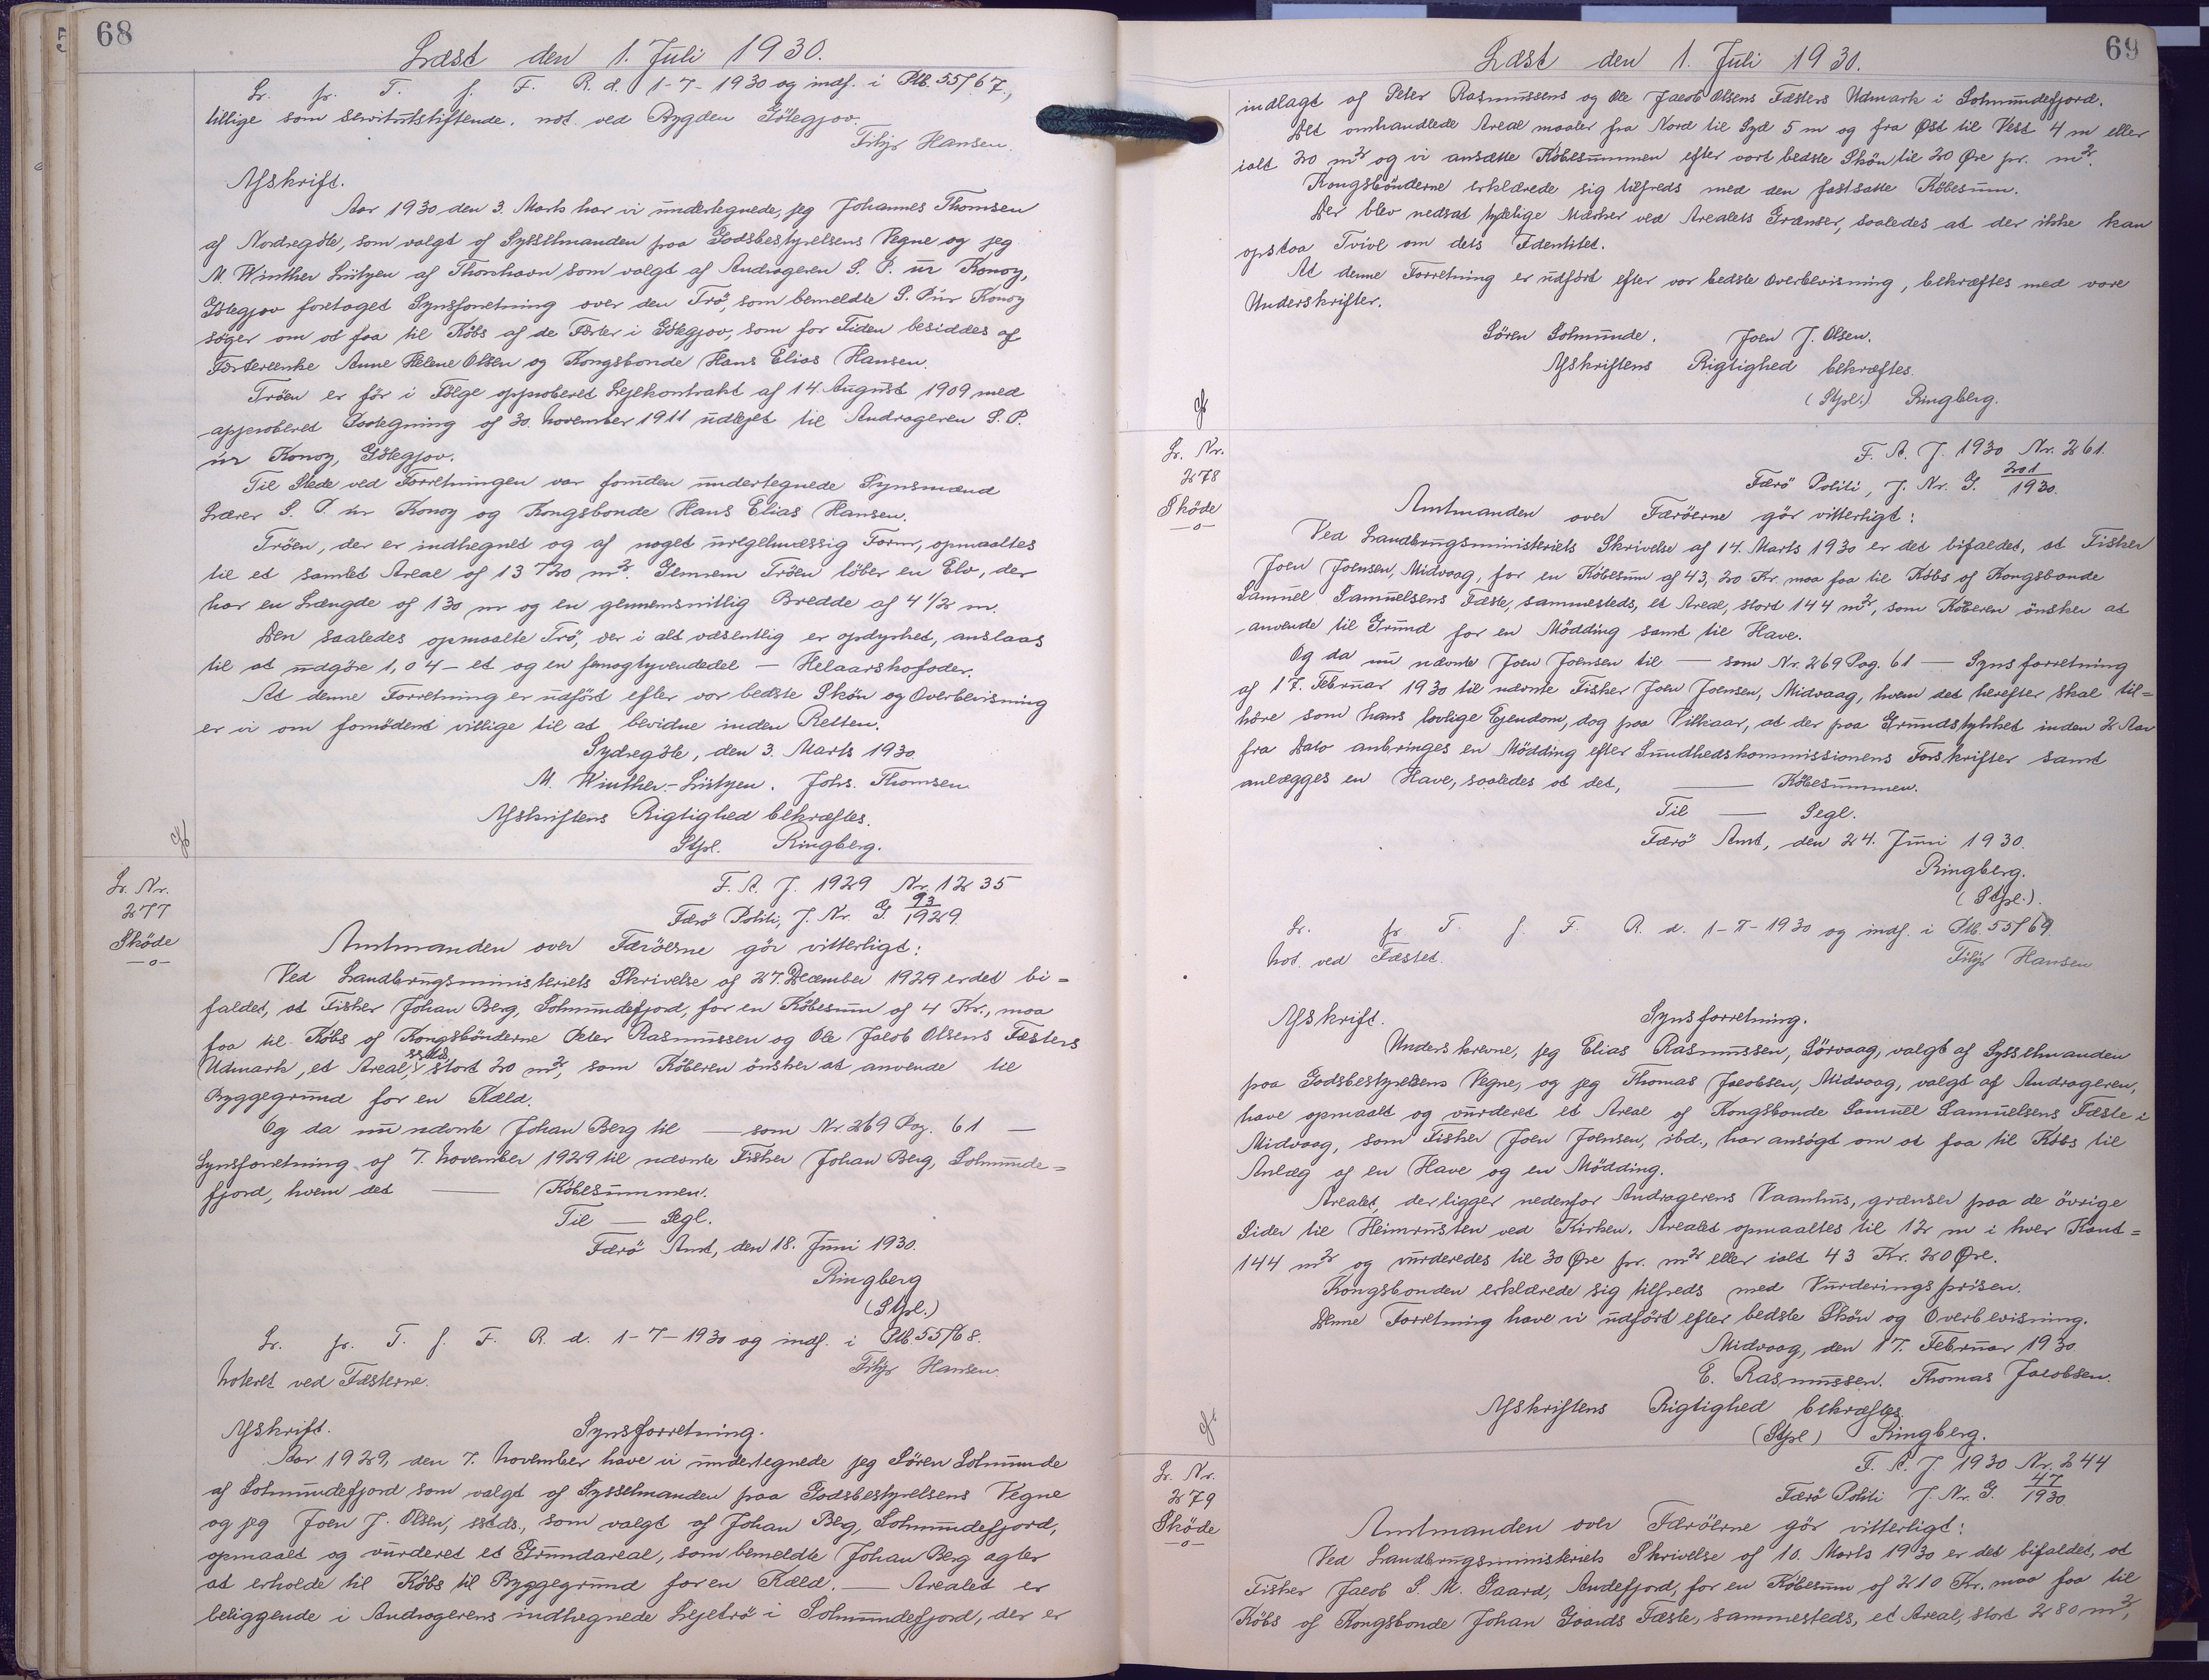 68
Læst den 1. Juli 1930.
Lr. fr. T. f. F. R. d. 1-7-1930 og indf. i Ptb. 55/67,
tillige som servitutstiftende. not. ved Bygden Götegjov.
Filijs Hansen.
Afskrift.
Aar 1930 den 3. Marts har vi undertegnede, jeg Johannes Thomsen
af Nordregöte, som valgt af Sysselmanden paa Godsbestyrelsens Vegne og jeg
M. Winther Lützen af Thorshavn som valgt af Andrageren S. P. úr Konoy,
Götegjov foretaget Synsforretning over den Trö, som bemeldte S. P. úr Konoy
söger om at faa til Köbs af de Fæster i Götegjov, som for Tiden besiddes af
Fæsterenke Anne Helene Olsen og Kongsbonde Hans Elias Hansen.
Tröen er för i Fölge approberet Lejekontrakt af 14. August 1909 med
approberet Paategning af 30. November 1911 udlejet til Andrageren S. P.
úr Konoy, Götegjov.
Til Stede ved Forretningen var foruden undertegnede Synsmænd
Lærer S. P. úr Konoy og Kongsbonde Hans Elias Hansen.
Tröen, der er indhegnet og af noget uregelmæssig Form, opmaaltes
til et samlet Areal af 13720 m². Gennem Tröen löber en Elv, der
har en Længde af 130 m og en gennemsnitlig Bredde af 4 1/2 m.
Den saaledes opmaalte Trö, der i alt væsentlig er opdyrket, anslaas
til at udgöre 1,04 – et og en femogtyvendedel — Helaarskofoder.
At denne Forretning er udfört efter vor bedste Skön og Overbevisning
er vi om fornödent villige til at bevidne inden Retten.
Sydregöte, den 3. Marts 1930.
M. Winther-Lützen. Johs. Thomsen.
Afskriftens Rigtighed bekræftes.
Stpl. Ringberg.
Lr. Nr.
277
Sköde
—o—
F. A. J. 1929 Nr. 1235
Færö Politi, J. Nr. G. 93/1929.
Amtmanden over Færöerne gör vitterligt:
Ved Landbrugsministeriets Skrivelse af 27. December 1929 er det bi=
faldet, at Fisker Johan Berg, Solmundefjord, for en Köbesum af 4 Kr., maa
faa til Köbs af Kongsbönderne Peter Rasmussen og Ole Jacob Olsens Fæsters
Udmark, et Areal, sstds, stort 20 m², som Köberen önsker at anvende til
Byggegrund for en Kæld.
Og da nu nævnte Johan Berg til — som Nr. 269 Pag. 61 —
Synsforretning af 7. November 1929 til nævnte Fisker Johan Berg, Solmunde=
fjord, hvem det — Köbesummen.
Til — Segl.
Færö Amt, den 18. Juni 1930.
Ringberg
(Stpl.)
Lr. fr. T. f. F. R. d. 1-7-1930 og indf. i Ptb. 55/68.
Noteret ved Fæsterne.
Filijs Hansen.
Afskrift. Synsforretning.
Aar 1929, den 7. November have vi undertegnede jeg Sören Solmunde
af Solmundefjord som valgt af Sysselmanden paa Godsbestyrelsens Vegne
og jeg Joen J. Olsen, sstds., som valgt af Johan Berg, Solmundefjord,
opmaalt og vurderet et Grundareal, som bemeldte Johan Berg agter
at erholde til Köbs til Byggegrund for en Kæld. — Arealet er
beliggende i Andragerens indhegnede Lejetrö i Solmundefjord, der er
69
Læst den 1. Juli 1930.
indlagt af Peter Rasmussens og Ole Jacob Olsens Fæsters Udmark i Solmundefjord.
Det omhandlede Areal maaler fra Nord til Syd 5 m og fra Øst til Vest 4 m eller
ialt 20 m² og vi ansætte Köbesummen efter vort bedste Skön til 20 Øre pr. m².
Kongsbönderne erklærede sig tilfreds med den fastsatte Köbesum.
Der blev nedsat tydelige Mærker ved Arealets Grænser, saaledes at der ikke kan
opstaa Tvivl om dets Identitet.
At denne Forretning er udfört efter vor bedste Overbevisning, bekræftes med vore
Underskrifter.
Sören Solmunde. Joen J. Olsen.
Afskriftens Rigtighed bekræftes.
(Stpl.) Ringberg.
Lr. Nr.
278
Sköde
—o—
F. A. J. 1930 Nr. 261.
Færö Politi, J. Nr. G. 201/1930.
Amtmanden over Færöerne gör vitterligt:
Ved Landbrugsministeriets Skrivelse af 14. Marts 1930 er det bifaldet, at Fisker
Joen Joensen, Midvaag, for en Köbesum af 43,20 Kr. maa faa til Köbs af Kongsbonde
Samuel Samuelsens Fæste, sammesteds, et Areal, stort 144 m², som Köberen önsker at
anvende til Grund for en Mödding samt til Have.
Og da nu nævnte Joen Joensen til — som Nr. 269 Pag. 61 — Synsforretning
af 17. Februar 1930 til nævnte Fisker Joen Joensen, Midvaag, hvem det herefter skal til=
höre som hans lovlige Ejendom, dog paa Vilkaar, at der paa Grundstykket inden 2 Aar
fra Dato anbringes en Mödding efter Sundhedskommissionens Forskrifter samt
anlægges en Have, saaledes at det, — Köbesummen.
Til — Segl.
Færö Amt, den 24. Juni 1930.
Ringberg.
(Stpl.).
Lr. fr. T. f. F. R. d. 1-7-1930 og indf. i Ptb. 55/69.
Not. ved Fæstet.
Filijs Hansen
Afskrift. Synsforretning.
Underskrevne, jeg Elias Rasmussen, Sörvaag, valgt af Sysselmanden
paa Godsbestyrelsens Vegne, og jeg Thomas Jacobsen, Midvaag, valgt af Andrageren,
have opmaalt og vurderet et Areal af Kongsbonde Samuel Samuelsens Fæste i
Midvaag, som Fisker Joen Joensen, ibd., har ansögt om at faa til Köbs til
Anlæg af en Have og en Mödding.
Arealet, der ligger nedenfor Andragerens Vaanhus, grænser paa de övrige
Sider til Heimrusten ved Kirken. Arealet opmaaltes til 12 m i hver Kant =
144 m² og vurderedes til 30 Øre pr. m² eller ialt 43 Kr. 20 Øre.
Kongsbonden erklærede sig tilfreds med Vurderingsprisen.
Denne Forretning have vi udfört efter bedste Skön og Overbevisning.
Midvaag, den 17. Februar 1930.
E. Rasmussen. Thomas Jacobsen.
Afskriftens Rigtighed bekræftes
(Stpl) Ringberg.
Lr. Nr.
279
Sköde
—o—
F. A. J. 1930 Nr. 244
Færö Politi J. Nr. G. 47/1930.
Amtmanden over Færöerne gör vitterligt:
Ved Landbrugsministeriets Skrivelse af 10. Marts 1930 er det bifaldet, at
Fisker Jacob S. M. Gaard, Andefjord, for en Köbesum af 210 Kr. maa faa til
Köbs af Kongsbonde Johan Gaards Fæste, sammesteds, et Areal, stort 280 m²,